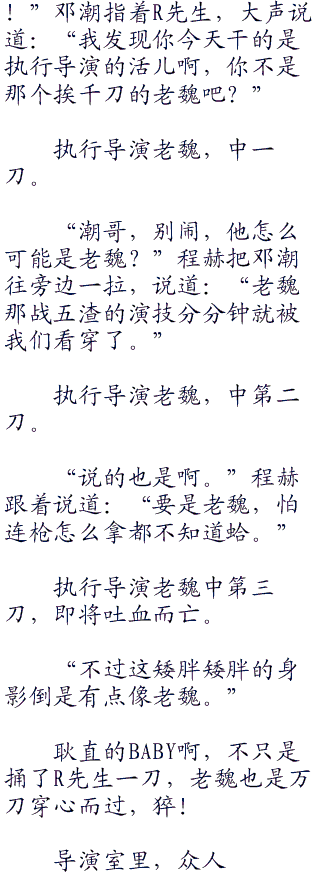 ！”邓潮指着R先生，大声说
道：“我发现你今天干的是
执行导演的活儿啊，你不是
那个挨千刀的老魏吧？”
执行导演老魏，中一
刀。
“潮哥，别闹，他怎么
可能是老魏？”程赫把邓潮
往旁边一拉，说道：“老魏
那战五渣的演技分分钟就被
我们看穿了。”
执行导演老魏，中第二
刀。
“说的也是啊。”程赫
跟着说道：“要是老魏，怕
连枪怎么拿都不知道蛤。”
执行导演老魏中第三
刀，即将吐血而亡。
“不过这矮胖矮胖的身
影倒是有点像老魏。”
耿直的BABY啊，不只是
捅了R先生一刀，老魏也是万
刀穿心而过，猝！
导演室里，众人